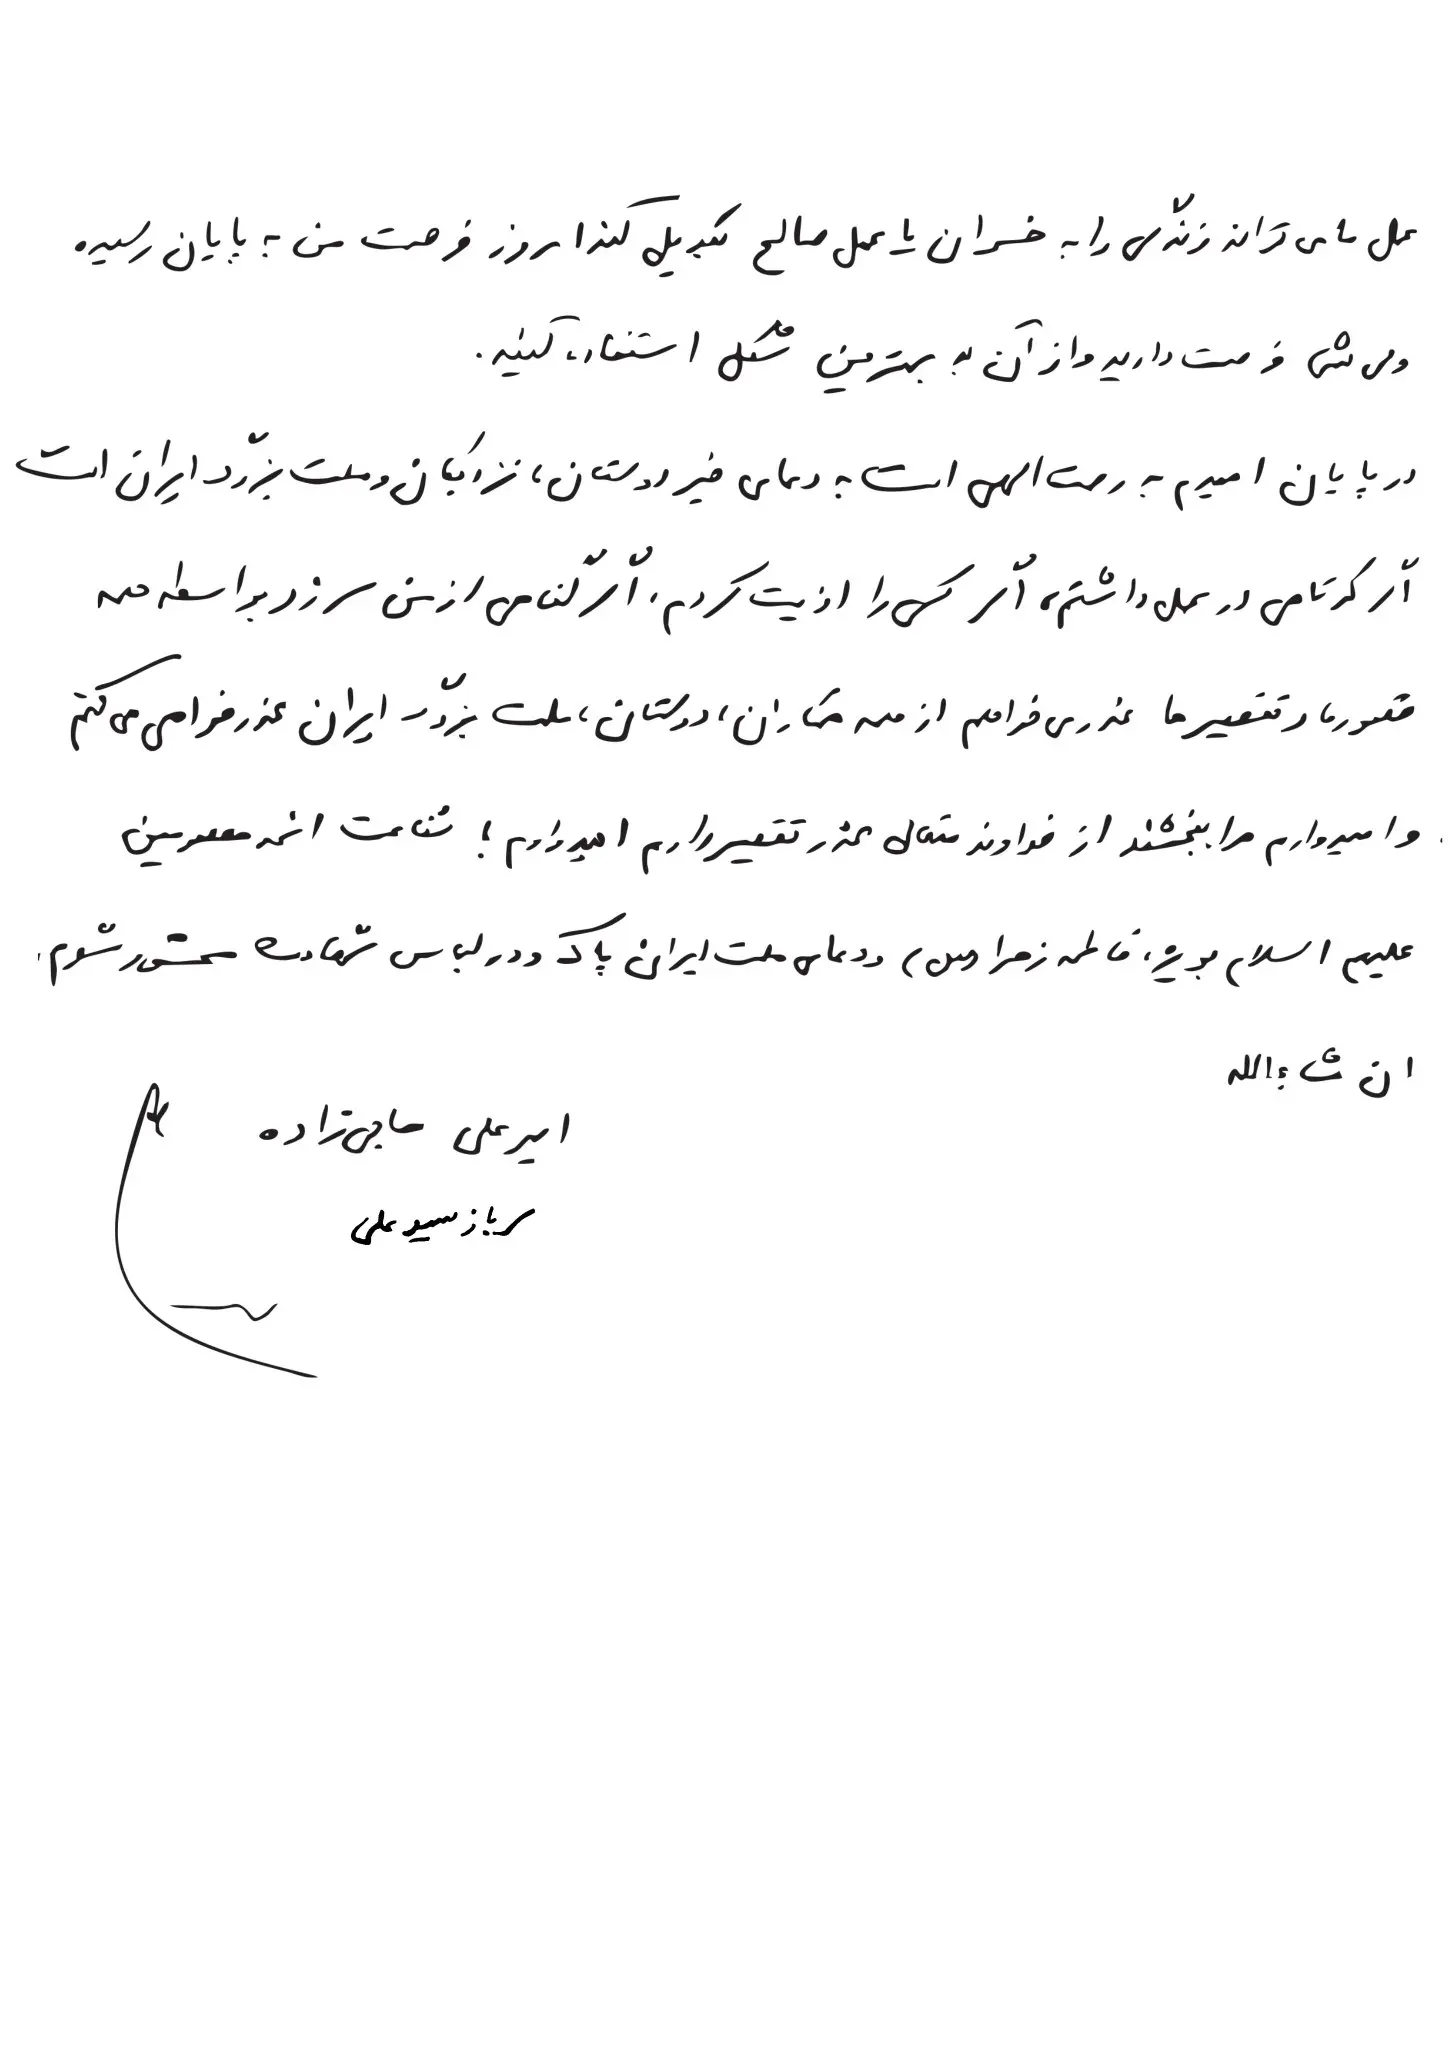 عمل ما می تواند زندگی را به خسران یا عمل صالح تبدیل کند امروز فرصت من به پایان رسیده
ولی شما فرصت دارید و از آن به بهترین شکل استفاده کنید.
در پایان امیدم به رحمت الهی است به دعای خیر دوستان، نزدیکان و ملت بزرگ ایران است
اگر کوتاهی در عمل داشتم، اگر کسی را اذیت کردم، اگر گناهی از من سر زد بواسطه همه
قصورها و تقصیرها عذر می خواهم از همه همکاران، دوستان، ملت بزرگ ایران عذرخواهی می کنم
و امیدوارم مرا ببخشند از خداوند متعال عذر تقصیر دارم امیدوارم با شفاعت ائمه معصومین
علیهم السلام بویژه، فاطمه زهرا (س) و دعای ملت ایران پاک و در لباس شهادت محشور شوم.
ان شاءالله
امیرعلی حاجی زاده
سرباز سید علی